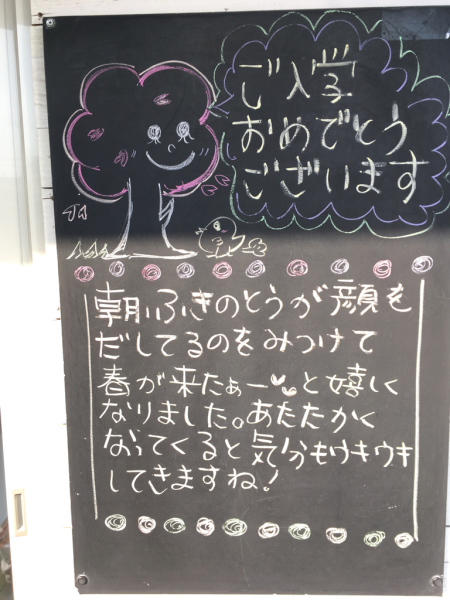 ご入学
おめでとう
ございます
朝ふきのとうが顔を
だしてるのをみつけて
春が来たぁー♥と嬉しく
なりました。あたたかく
なってくると気分もウキウキ
してきますね!